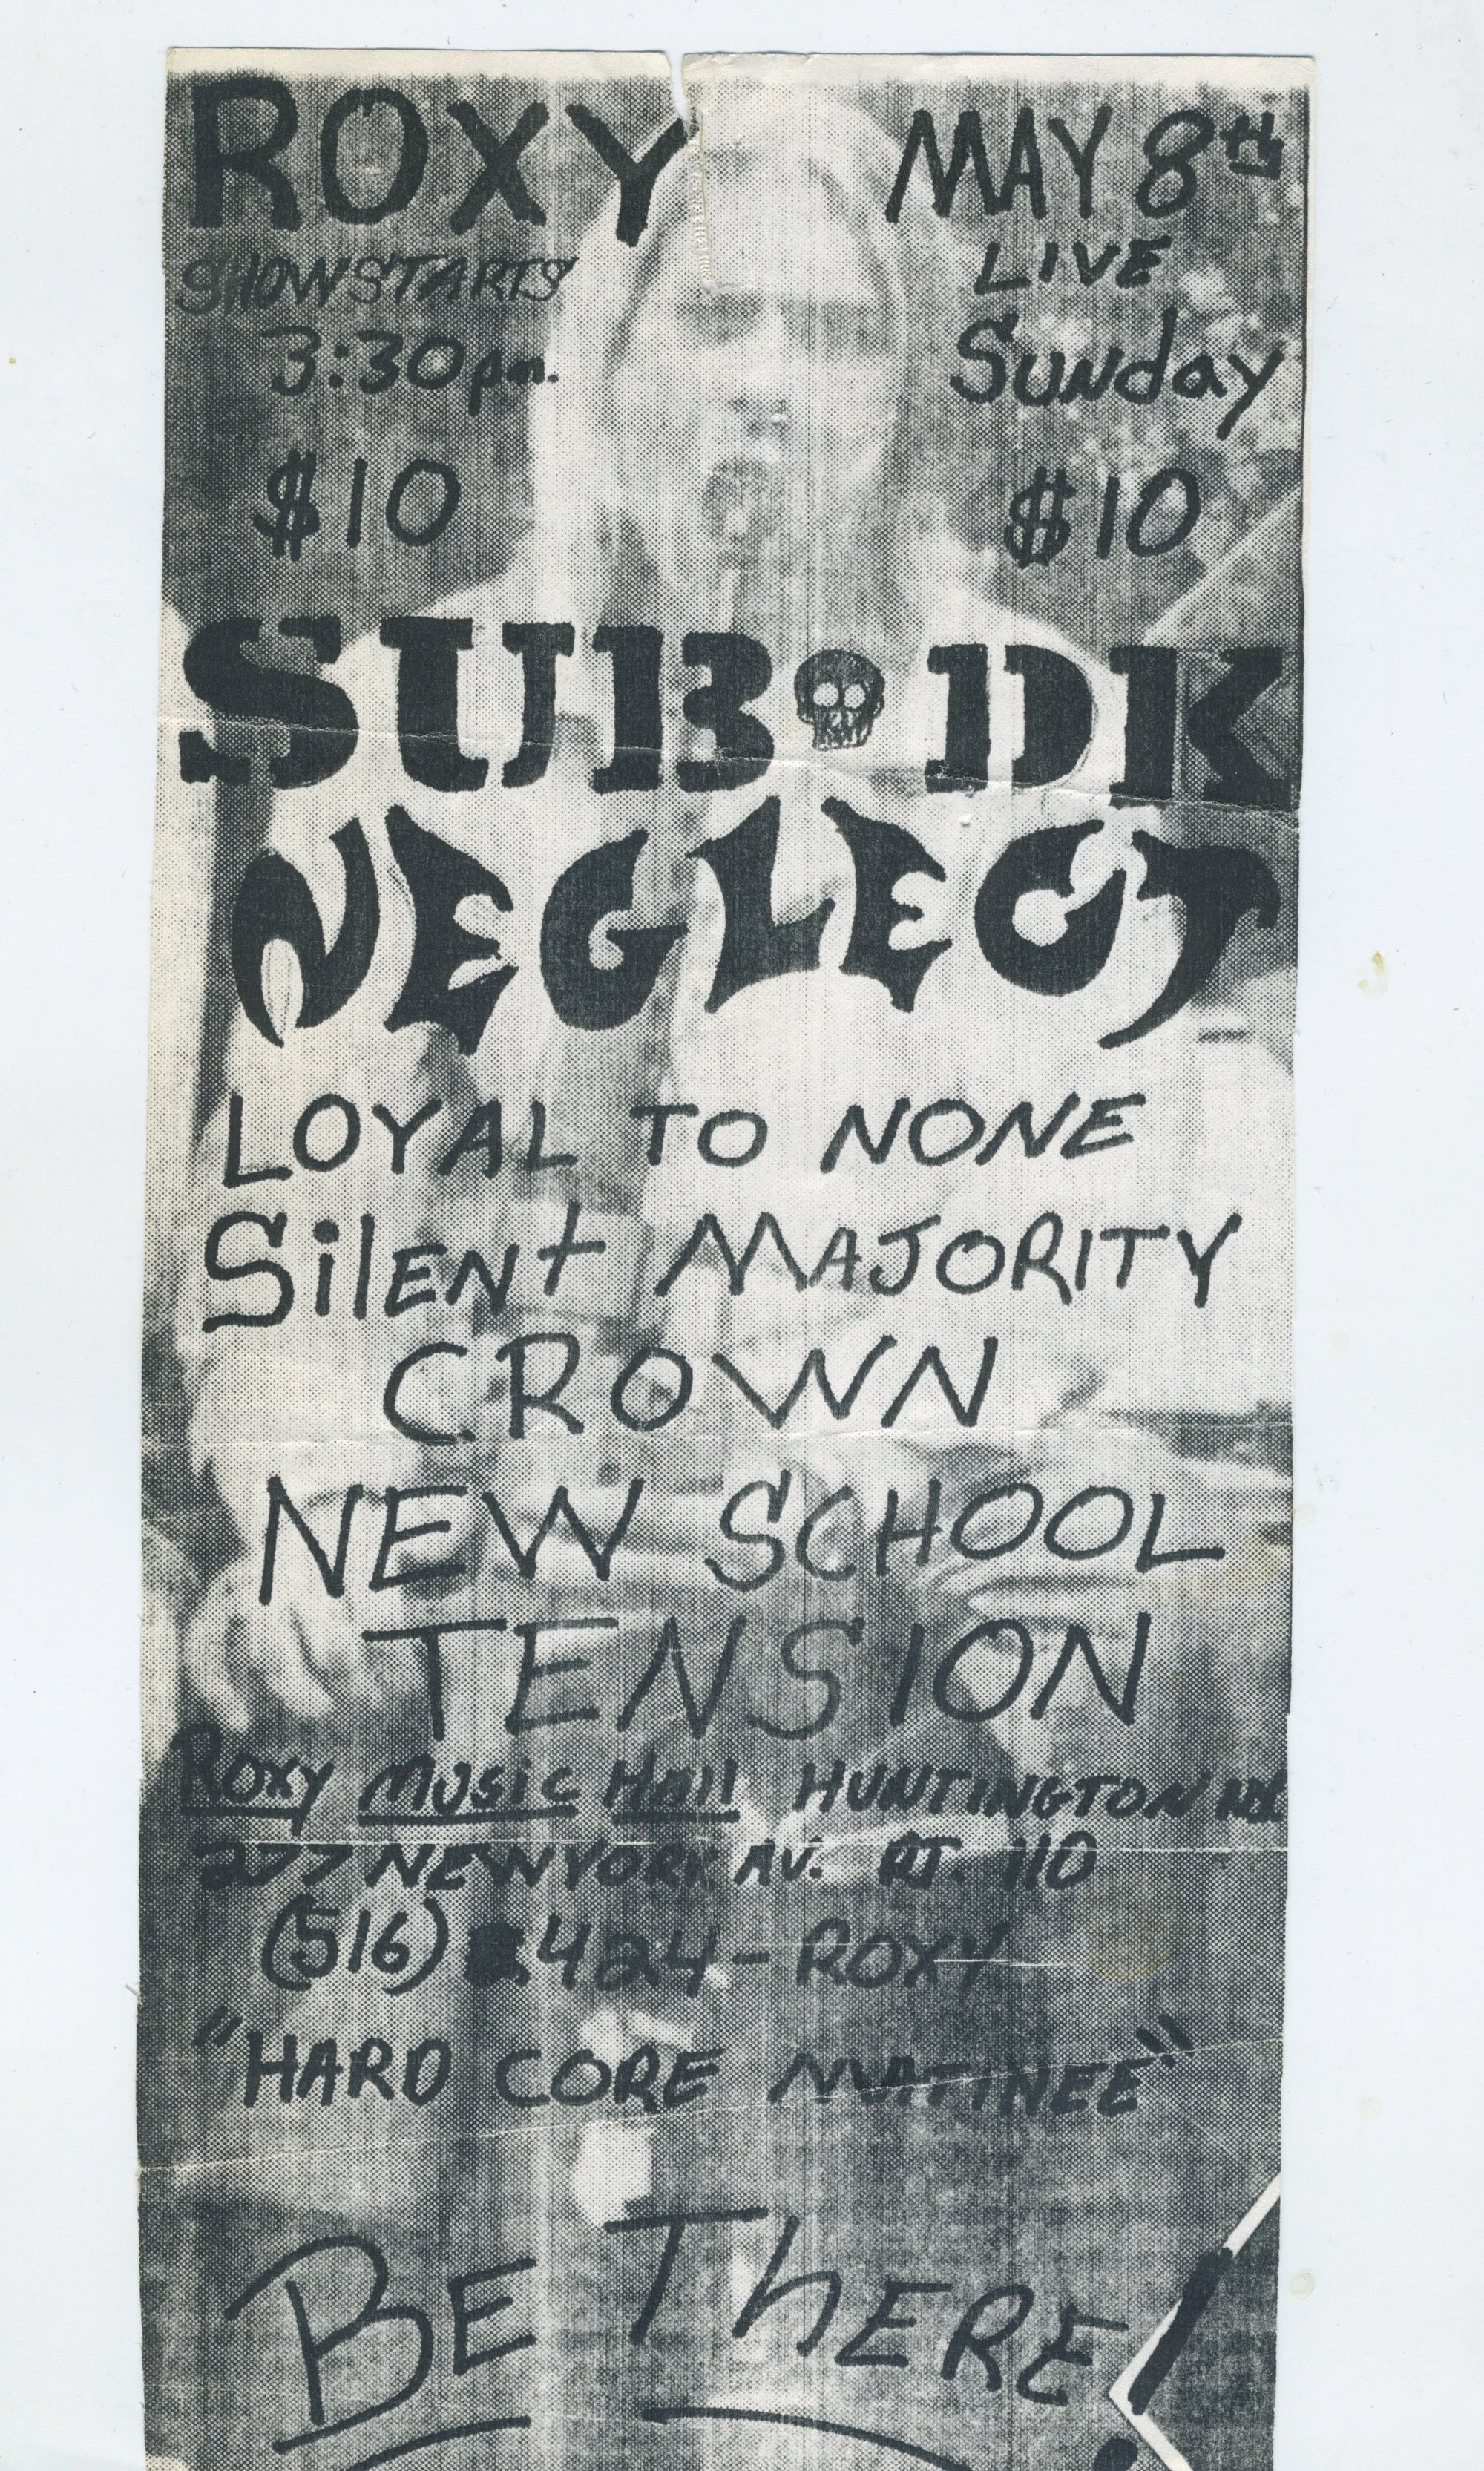 ROXY
MAY 8th
SHOW STARTS
LIVE
3:30 pm.
Sunday
$10
$10
SUB DK
NEGLECT
LOYAL TO NONE
SilENt MAJORITY
CROWN
NEW SCHOOL
TENSION
Roxy Music Hall HUNTINGTON
277 NEWYORK AV. RT. 110
(516) 424-ROXY
"HARD CORE MATINEE"
BE ThERE!